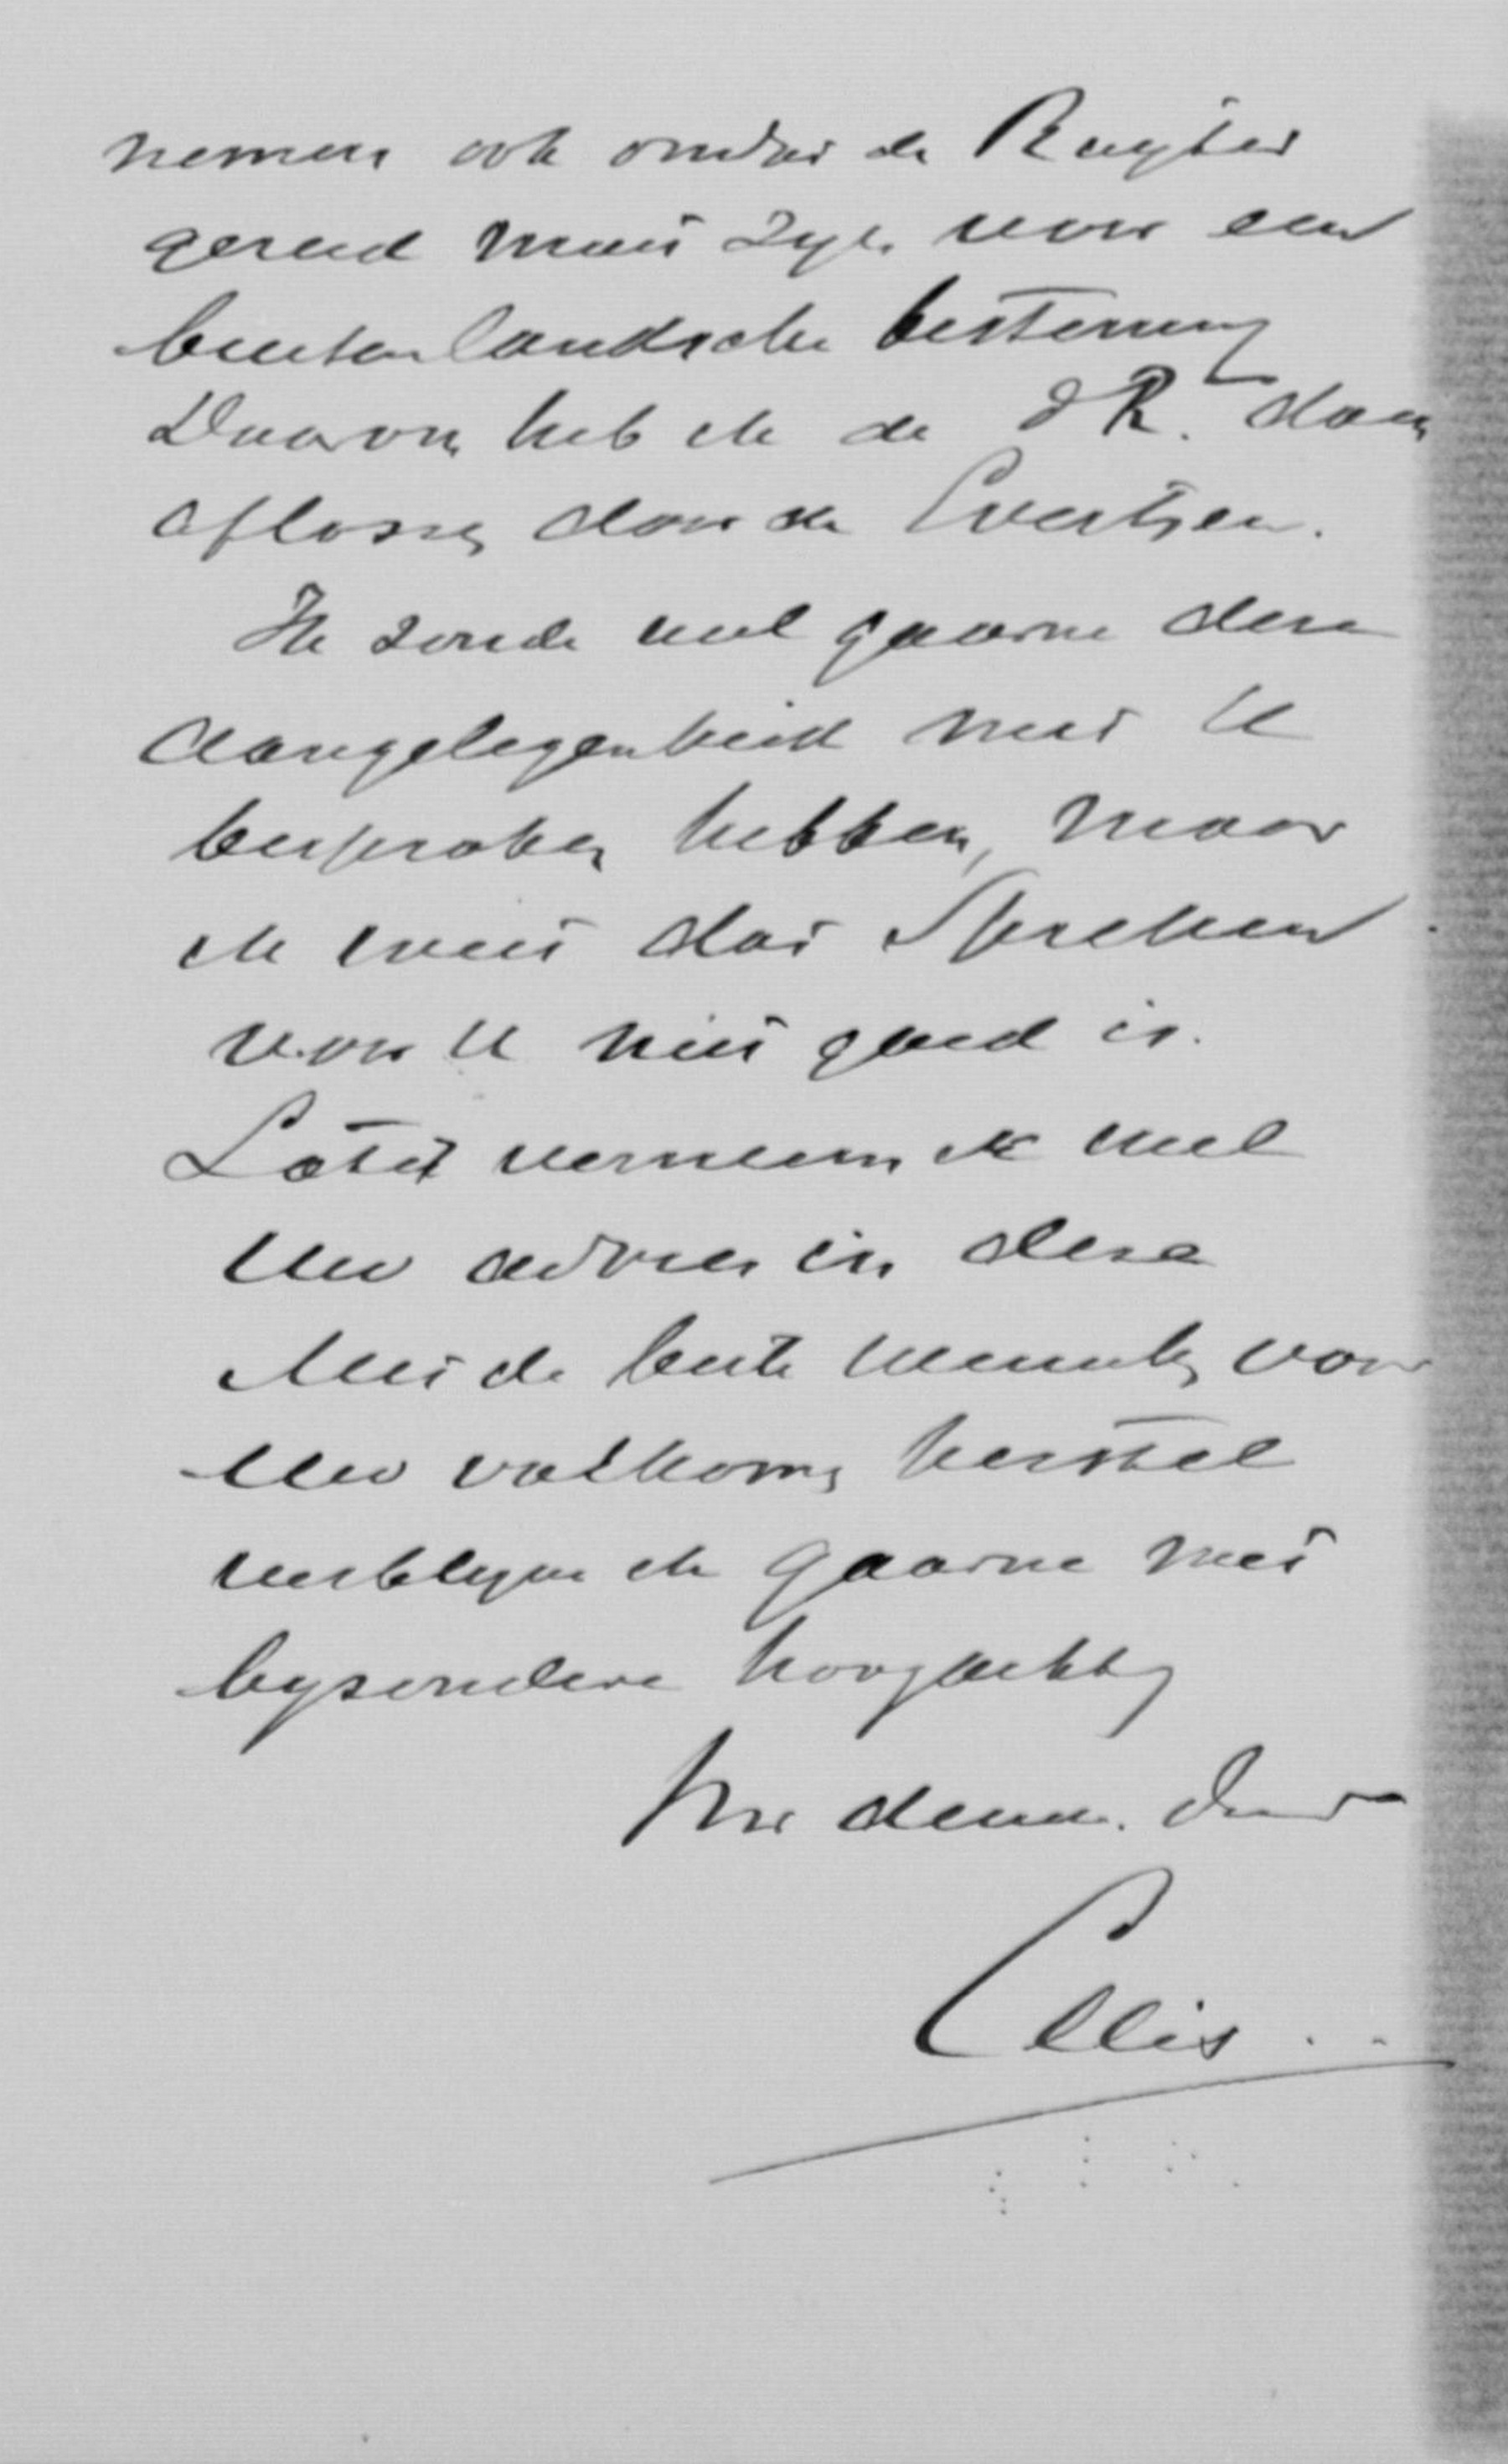 nemen ook omdat de Ruyter
gereed moet zyn voor een
buitenlandsche bestemming
Daarom heb ik de dR. doen
aflossen door de Evertsen.
Ik zoude wel gaarne deze
aangelegenheid met U
besproken hebben, maar
ik weet dat Spreken
voor U niet goed is.
Later verneem ik wel
Uw advies in deze
Met de beste wenschen voor
Uw volkomen herstel
verblyve ik gaarne met
byzondere hoogachting
Uw dienw. dr
Ellis